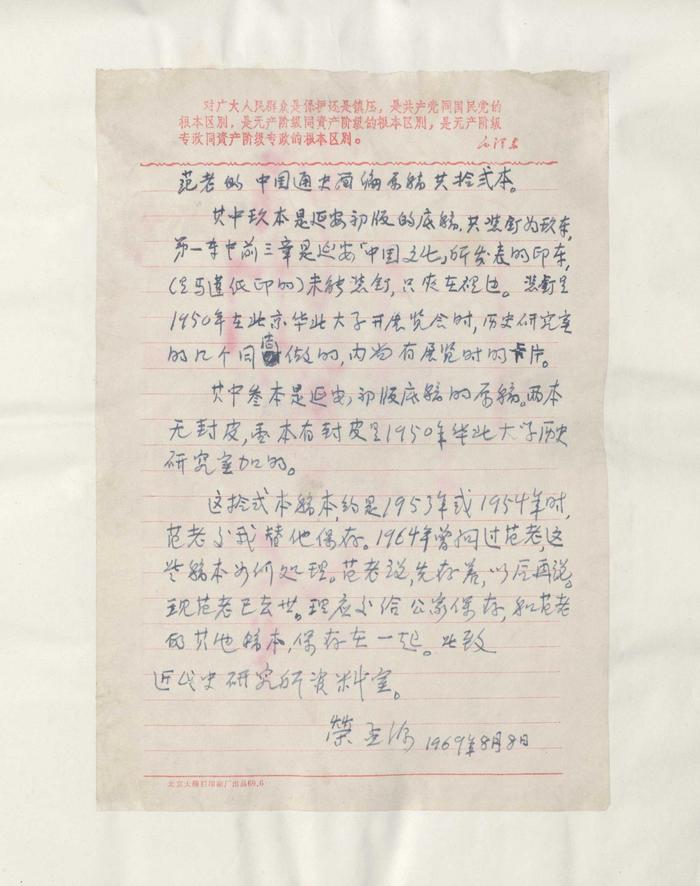 对广大人民群众是保护还是镇压，是共产党同国民党的
根本区别，是无产阶级同资产阶级的根本区别，是无产阶级
专政同资产阶级专政的根本区别。
毛泽东
范老的中国通史简编原稿共拾贰本。
其中玖本是延安初版的底稿，共装钉为玖本，
第一本中前三章是延安「中国文化」所发表的印本，
(是马蓮纸印的)未能装钉，只夹在裡边。装钉是
1950年在北京华北大学开展览会时，历史研究室
的几个同志做的，内尚有展览时的卡片。
其中叁本是延安初版底稿的原稿。两本
无封皮，壹本有封皮是1950年华北大学历史
研究室加的。
这拾贰本稿本，约是1953年或1954年时，
范老交我替他保存。1964年曾问过范老，这
些稿本如何处理。范老说，先存着，以后再说。
现范老已去世。理应交给公家保存，和范老
的其他稿本，保存在一起。此致
近代史研究所资料室。
荣孟源 1969年8月8日
北京大栅栏印刷厂出品69.6